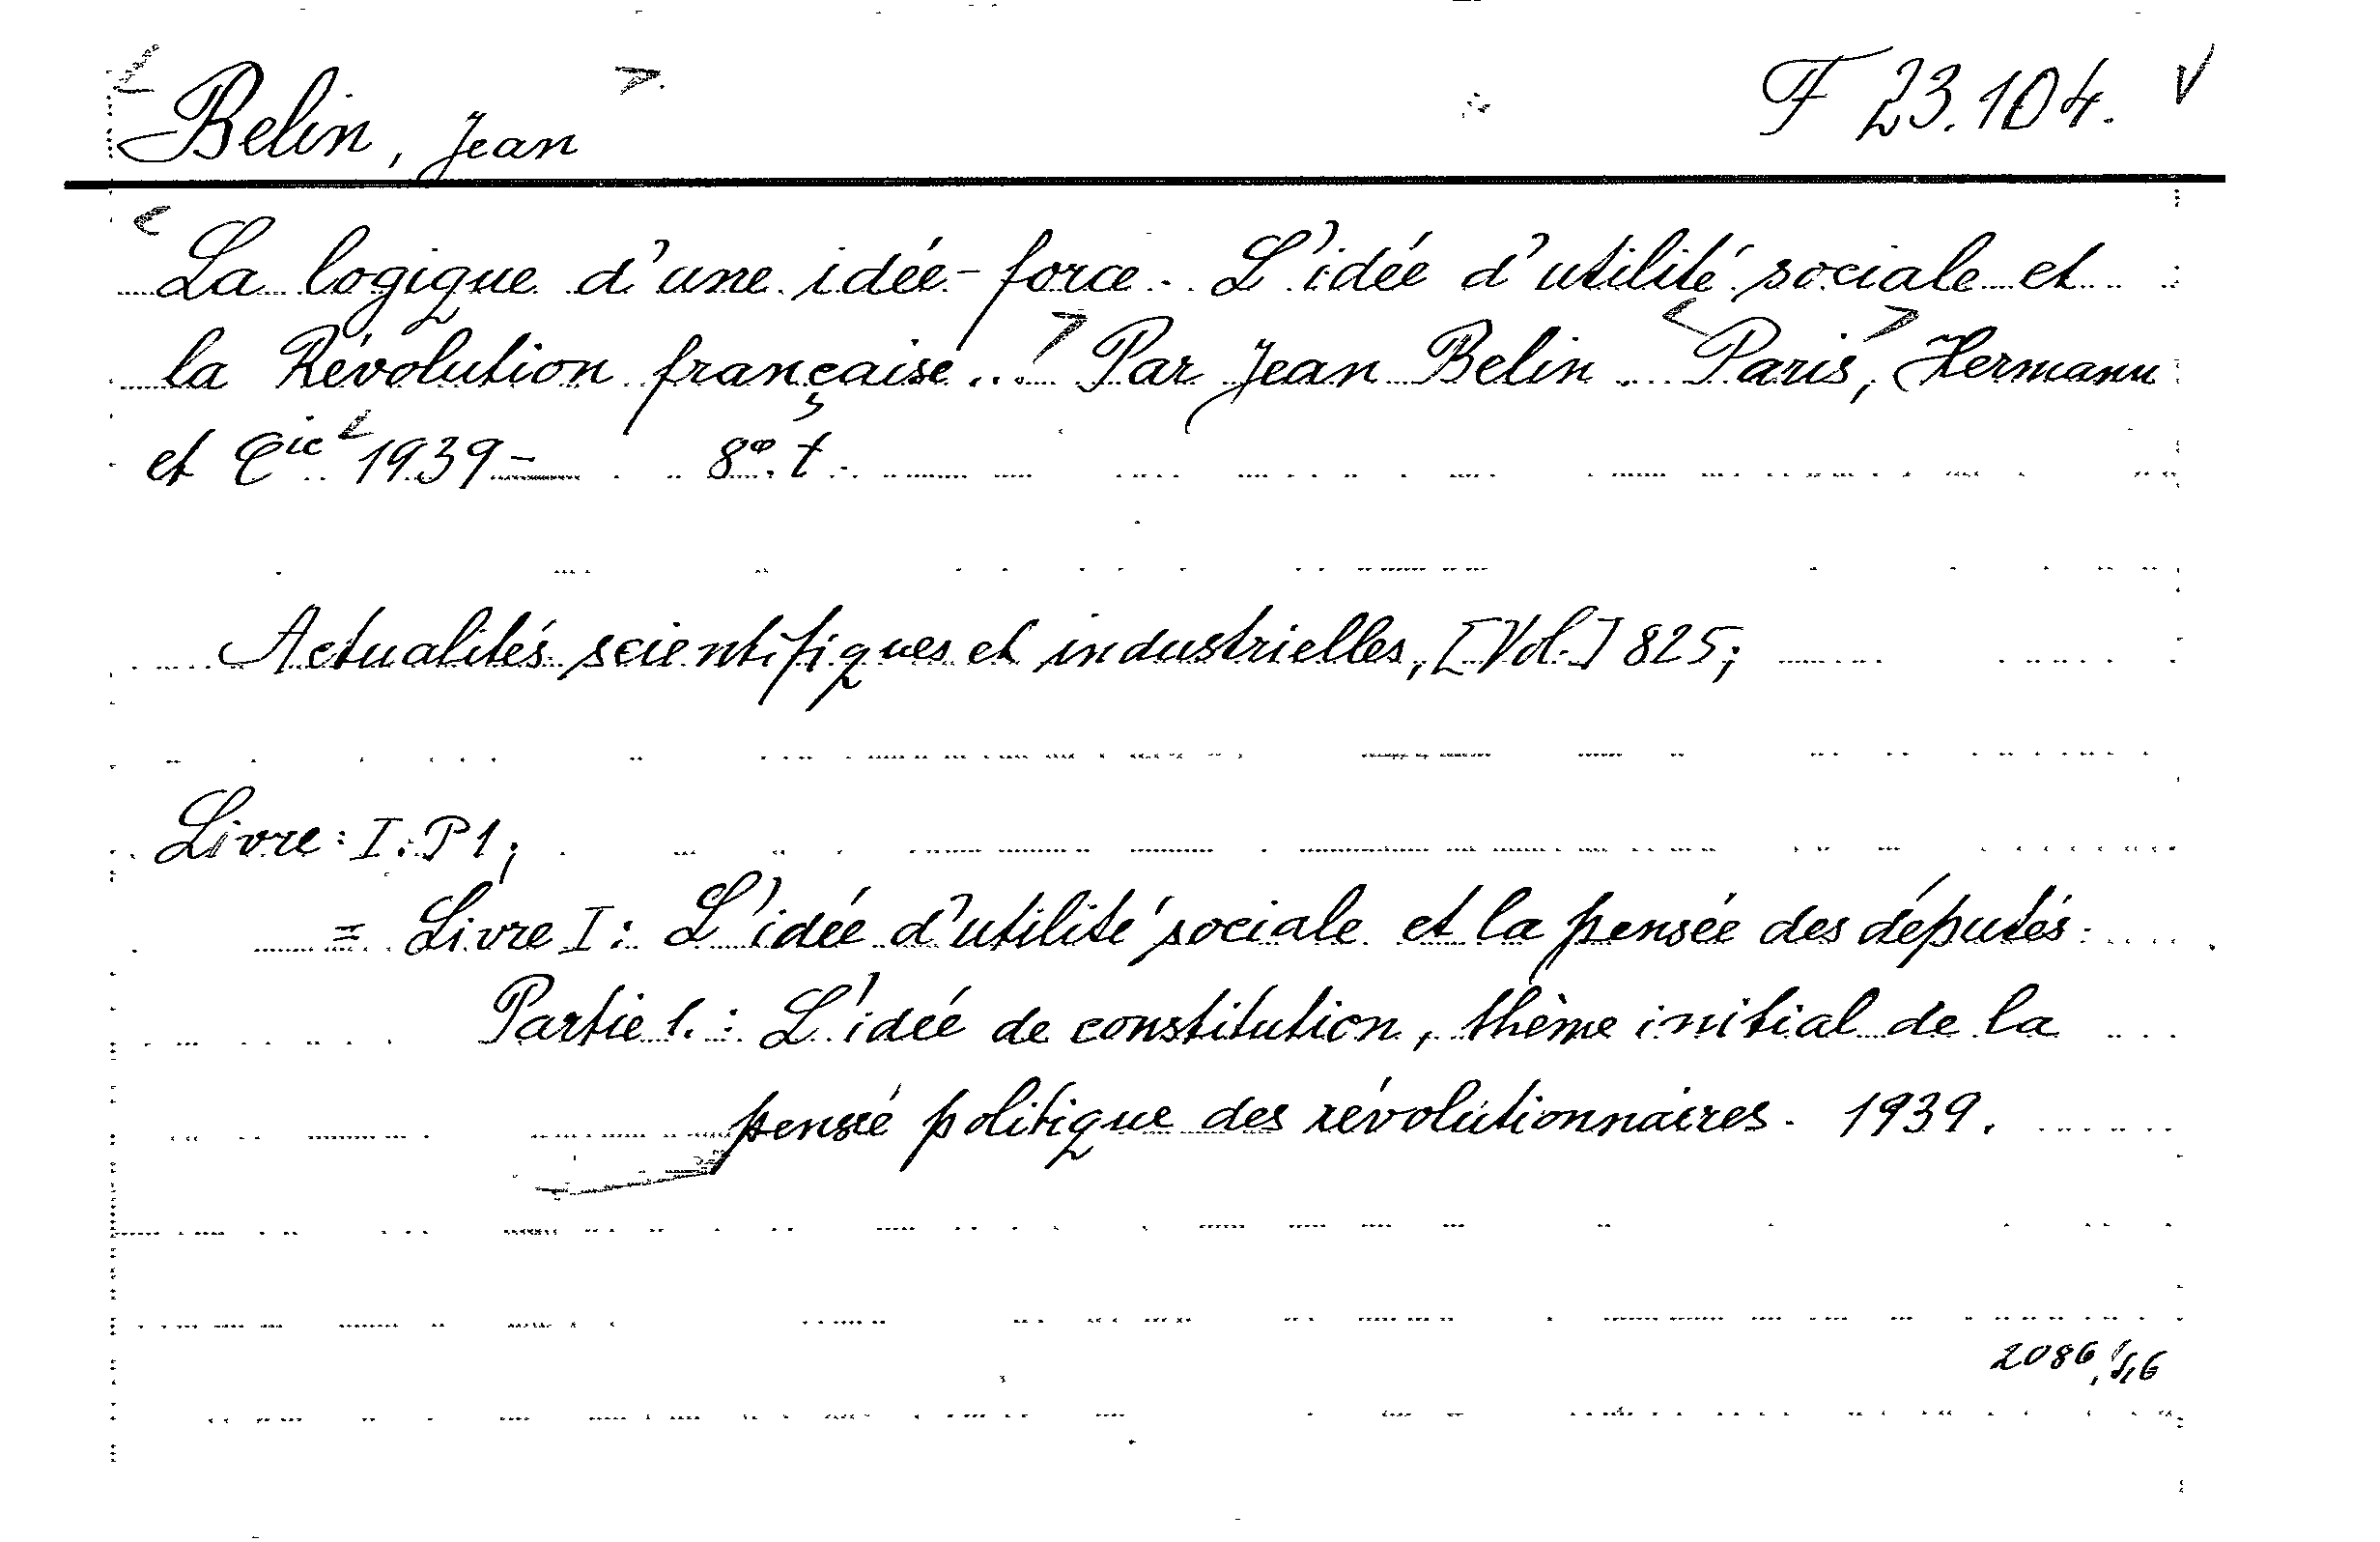 Belin, Jean F 23.104.
La logique d'une idée-force. L'idée d'utilité sociale et
la Révolution française... Par Jean Belin. Paris, Hermann
et Cie 1939-    8º. t.
Actualités scientifiques et industrielles, [Vol.] 825;
Livre: I: P1;
= Livre I: L'idée d'utilité sociale et la pensée des députés.
Partie 1.: L'idée de constitution, thème initial de la
pensée politique des révolutionnaires. 1939.
2086,